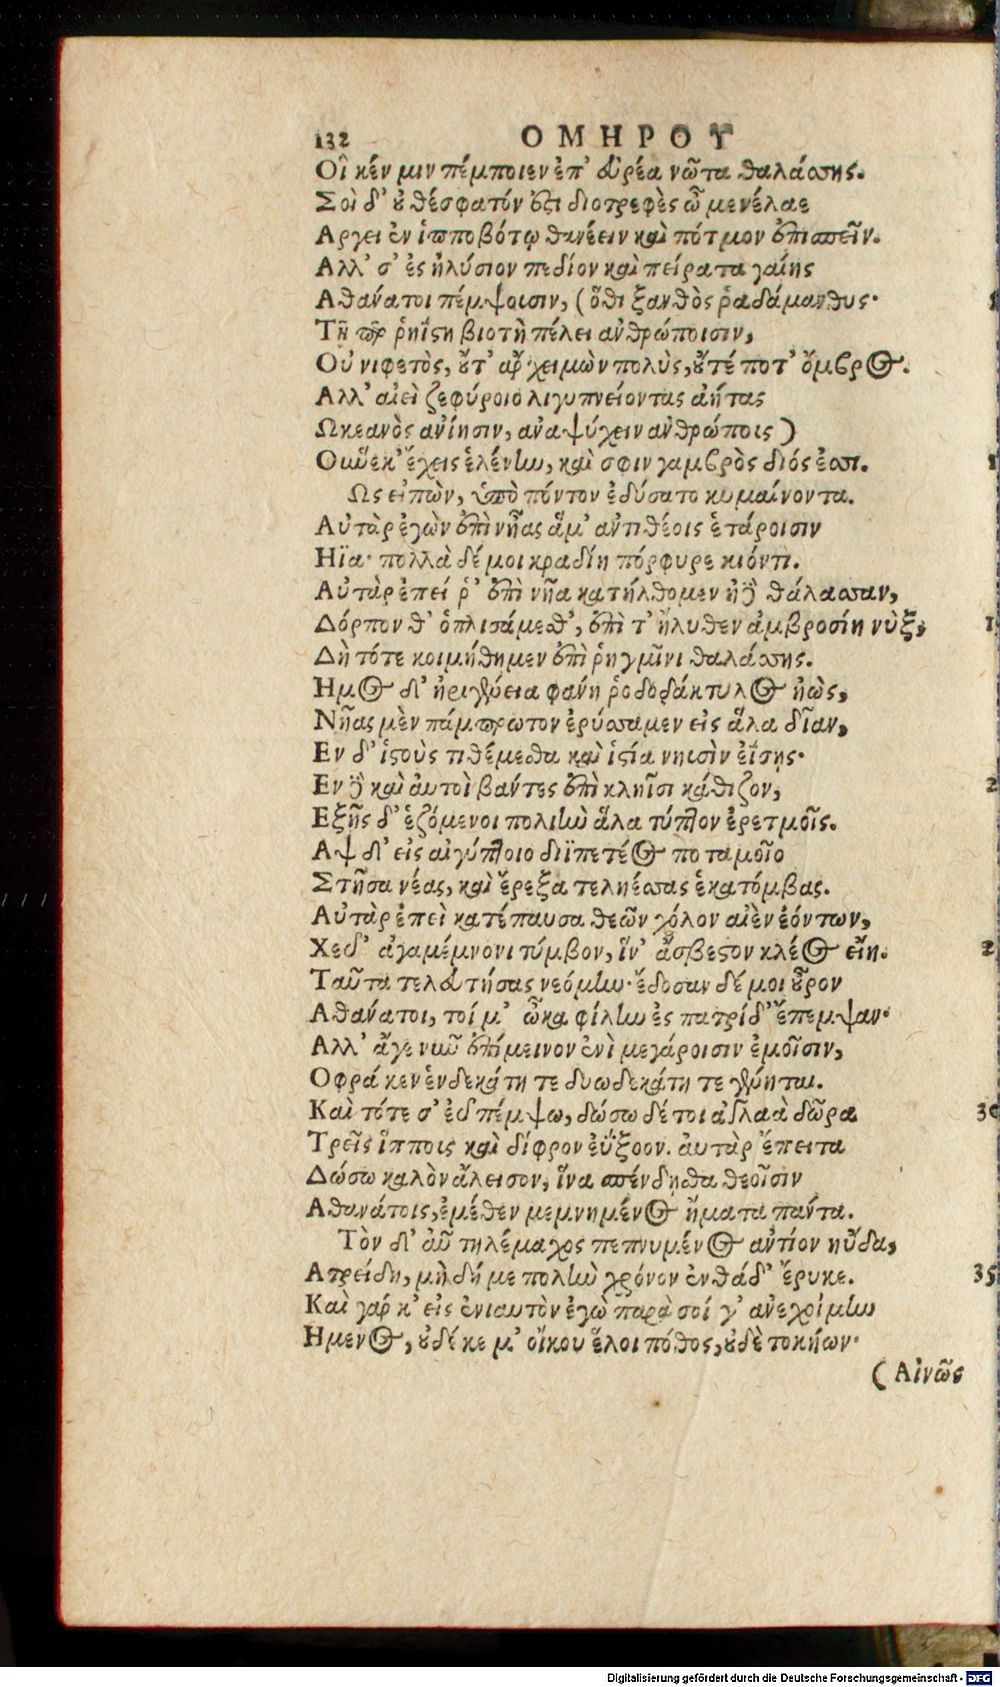 132 ΟΜΗΡΟΥ
Οἳ κέν μιν πέμποιεν ἐπ' εὐρέα νῶτα θαλάσσης.
Σοὶ δ' οὐ θέσφατόν ἐστι διοτρεφὲς ὦ μενέλαε
Αργει ἐν ἱπποβότῳ θανέειν καὶ πότμον ἐπισπεῖν.
Αλλ' σ' ἐς ἠλύσιον πεδίον καὶ πείρατα γαίης
Αθάνατοι πέμψοισιν, (ὅθι ξανθὸς ῥαδάμανθυς·
Τῇ περ ῥηΐστη βιοτὴ πέλει ἀνθρώποισιν,
Οὐ νιφετὸς, οὔτ' ἂρ χειμὼν πολὺς, οὔτέ ποτ' ὄμβρος.
Αλλ' αἰεὶ ζεφύροιο λιγυπνείοντας ἀήτας
Ωκεανὸς ἀνίησιν, ἀναψύχειν ἀνθρώποις)
Οὕνεκ' ἔχεις ἑλένην, καί σφιν γαμβρὸς διός ἐσσι.
Ως εἰπὼν, ὑπὸ πόντον ἐδύσατο κυμαίνοντα.
Αὐτὰρ ἐγὼν ἐπὶ νῆας ἅμ' ἀντιθέοις ἑτάροισιν
Ηϊα· πολλὰ δέ μοι κραδίη πόρφυρε κιόντι.
Αὐτὰρ ἐπεί ῥ' ἐπὶ νῆα κατήλθομεν ἠδὲ θάλασσαν,
Δόρπον θ' ὁπλισάμεσθ', ἐπὶ τ' ἤλυθεν ἀμβροσίη νὺξ,
Δὴ τότε κοιμήθημεν ἐπὶ ῥηγμῖνι θαλάσσης.
Ημος δ' ἠριγένεια φάνη ῥοδοδάκτυλος ἠὼς,
Νῆας μὲν πάμπρωτον ἐρύσσαμεν εἰς ἅλα δῖαν,
Εν δ' ἱστοὺς τιθέμεσθα καὶ ἱστία νηυσὶν ἐΐσης·
Εν δὲ καὶ αὐτοὶ βάντες ἐπὶ κληῗσι κάθιζον,
Εξῆς δ' ἑζόμενοι πολιὴν ἅλα τύπτον ἐρετμοῖς.
Αψ δ' εἰς αἰγύπτοιο διϊπετέος ποταμοῖο
Στῆσα νέας, καὶ ἔρεξα τεληέσσας ἑκατόμβας.
Αὐτὰρ ἐπεὶ κατέπαυσα θεῶν χόλον αἰὲν ἐόντων,
Χεῦ' ἀγαμέμνονι τύμβον, ἵν' ἄσβεστον κλέος εἴη.
Ταῦτα τελευτήσας νεόμην· ἔδοσαν δέ μοι οὖρον
Αθάνατοι, τοί μ' ὦκα φίλην ἐς πατρίδ' ἔπεμψαν·
Αλλ' ἄγε νῦν ἐπίμεινον ἐνὶ μεγάροισιν ἐμοῖσιν,
Οφρά κεν ἑνδεκάτη τε δυωδεκάτη τε γένηται.
Καὶ τότε σ' εὖ πέμψω, δώσω δέ τοι ἀγλαὰ δῶρα
Τρεῖς ἵπποις καὶ δίφρον ἐΰξοον. αὐτὰρ ἔπειτα
Δώσω καλὸν ἄλεισον, ἵνα σπένδησθα θεοῖσιν
Αθανάτοις, ἐμέθεν μεμνημένος ἤματα πάντα.
Τὸν δ' αὖ τηλέμαχος πεπνυμένος ἀντίον ηὔδα,
Ατρείδη, μὴ δή με πολὺν χρόνον ἐνθάδ' ἔρυκε.
35
Καὶ γάρ κ' εἰς ἐνιαυτὸν ἐγὼ παρὰ σοί γ' ἀνεχοίμην
Ημενος, οὐδέ κε μ' οἴκου ἕλοι πόθος, οὐδὲ τοκήων·
(Αἰνῶς
Digitalisierung gefördert durch die Deutsche Forschungsgemeinschaft - DFG